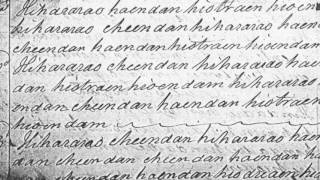 Hihararao haendan hiotraen hioen
hihararao cheendan hihararao haen
cheendan haendan hiotraen hioendam
Hihararao cheendan hihararao haen
dan hiotraen hioendam hihararao
endan cheendan haendan hiotraen
hioendam
Hihararao cheendan hihararao haen
dan cheen dan cheen dan haendan ha
cheendan haendan hiodraen hioen